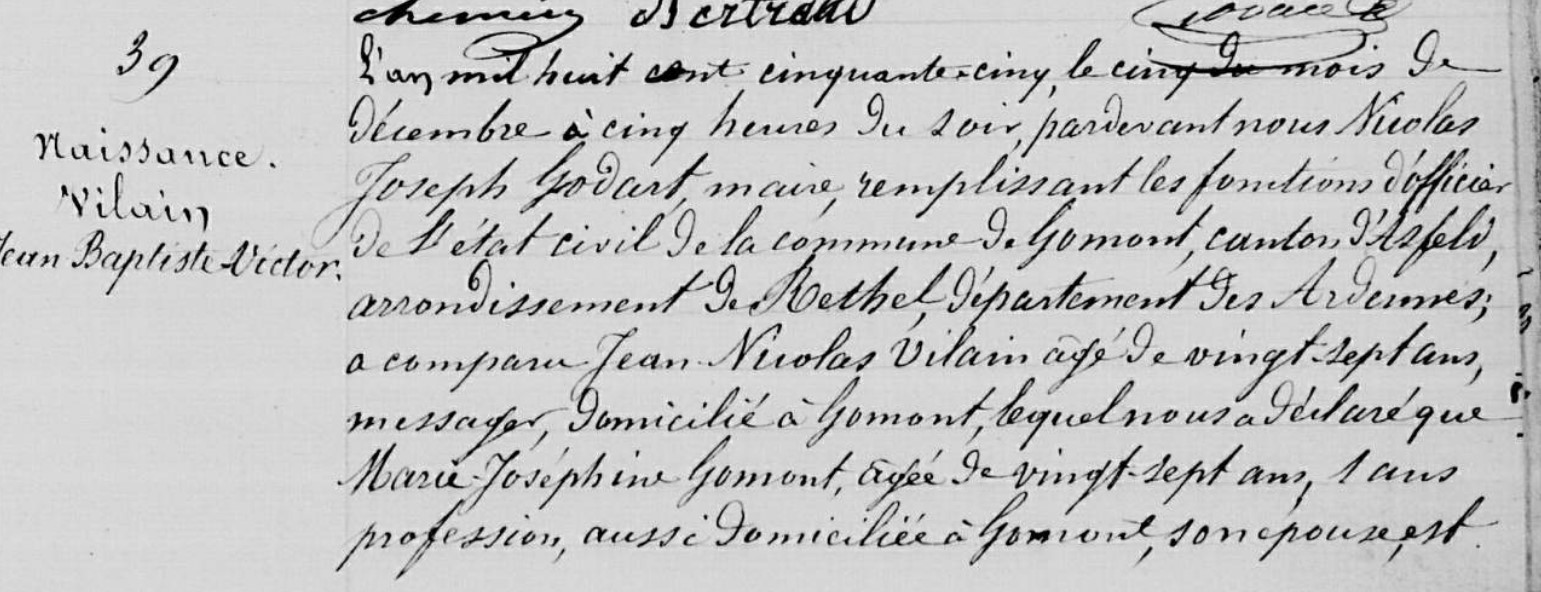 Bertrand
39
Naissance.
Vilain
Jean Baptiste Victor.
L'an mil huit cent cinquante-cinq, le cinq du mois de
décembre à cinq heures du soir, pardevant nous Nicolas
Joseph Godart, maire, remplissant les fonctions d'officier
de l'état civil de la commune de Gomont, canton d'Asfeld,
arrondissement de Rethel, département des Ardennes;
a comparu Jean Nicolas Vilain âgé de vingt-sept ans,
messager, domicilié à Gomont, lequel nous a déclaré que
Marie-Joséphine Gomont, âgée de vingt-sept ans, sans
profession, aussi domiciliée à Gomont, son épouse, est